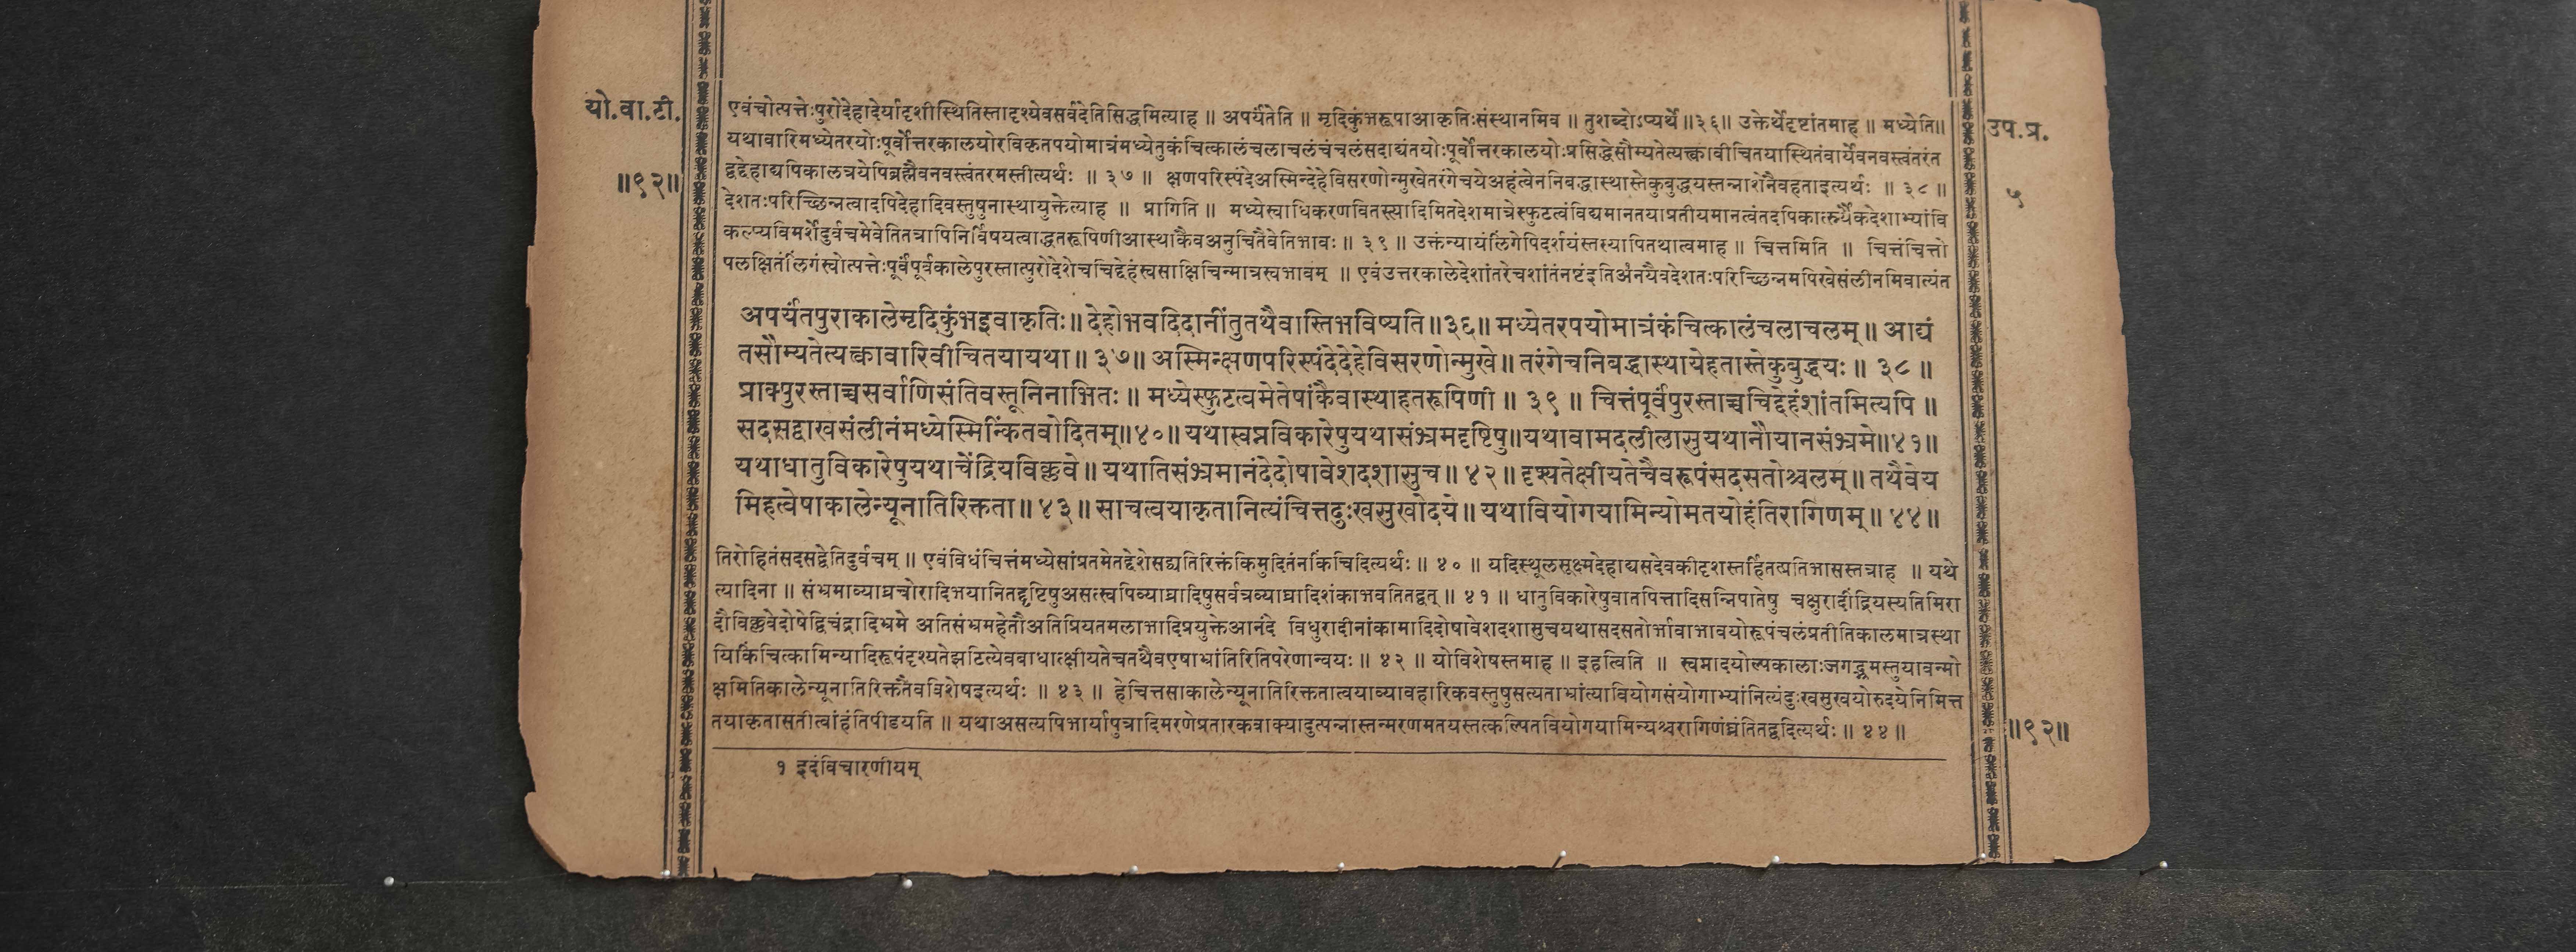 यो.वा.टी.
॥९२॥
उप.प्र.
५
एवंचोत्पत्तेःपुरोदेहादेर्यादृशीस्थितिस्तादृश्येवसर्वदेतिसिद्धमित्याह ॥ अपर्यंतेति ॥ मृदिकुंभरूपाआकृतिःसंस्थानमिव ॥ तुशब्दोऽप्यर्थे॥३६॥ उक्तेर्थेदृष्टांतमाह ॥ मध्येति॥
यथावारिमध्येतरयोःपूर्वोत्तरकालयोरविकृतपयोमात्रंमध्येतुकंचित्कालंचलाचलंचंचलंसदाद्यंतयोःपूर्वोत्तरकालयोःप्रसिद्धेसौम्यतेत्यक्त्वावीचितयास्थितंवार्येवनवस्त्वंतरंत
द्वद्देहाद्यपिकालत्रयेपिब्रह्मैवनवस्त्वंतरमस्तीत्यर्थः ॥ ३७ ॥ क्षणपरिस्पंदेअस्मिन्देहेविसरणोन्मुखेतरंगेचयेअहंत्वेननिबद्धास्थास्तेकुबुद्धयस्तन्नाशेनैवहताइत्यर्थः ॥ ३८ ॥
देशतःपरिच्छिन्नत्वादपिदेहादिवस्तुषुनास्थायुक्तेत्याह ॥ प्रागिति ॥ मध्येस्वाधिकरणवितस्त्यादिमितदेशमात्रेस्फुटत्वंविद्यमानतयाप्रतीयमानत्वंतदपिकार्त्स्न्यैकदेशाभ्यांवि
कल्प्यविमर्शेदुर्वचमेवेतितत्रापिनिर्विषयत्वाद्धतरूपिणीआस्थाकैवअनुचितैवेतिभावः ॥ ३९ ॥ उक्तंन्यायंलिंगेपिदर्शयंस्तस्यापितथात्वमाह ॥ चित्तमिति ॥ चित्तंचित्तो
पलक्षितंलिंगंस्वोत्पत्तेःपूर्वंपूर्वकालेपुरस्तात्पुरोदेशेचचिद्देहंस्वसाक्षिचिन्मात्रस्वभावम् ॥ एवंउत्तरकालेदेशांतरेचशांतंनष्टंइतिअनयैवदेशतःपरिच्छिन्नमपिखेसंलीनमिवात्यंत
अपर्यंतपुराकालेमृदिकुंभइवाकृतिः॥ देहोभवदिदानींतुतथैवास्तिभविष्यति॥३६॥ मध्येतरपयोमात्रंकंचित्कालंचलाचलम्॥ आद्यं
तसौम्यतेत्यक्त्वावारिवीचितयायथा॥ ३७॥ अस्मिन्क्षणपरिस्पंदेदेहेविसरणोन्मुखे॥ तरंगेचनिबद्धास्थायेहतास्तेकुबुद्धयः॥ ३८ ॥
प्राक्पुरस्ताच्चसर्वाणिसंतिवस्तूनिनाभितः॥ मध्येस्फुटत्वमेतेषांकैवास्थाहतरूपिणी॥ ३९ ॥ चित्तंपूर्वंपुरस्ताच्चचिद्देहंशांतमित्यपि॥
सदसद्वाखसंलीनंमध्येस्मिन्किंतवोदितम्॥४०॥ यथास्वप्नविकारेषुयथासंभ्रमदृष्टिषु॥यथावामदलीलासुयथानौयानसंभ्रमे॥४१॥
यथाधातुविकारेषुयथाचेंद्रियविक्लवे॥ यथातिसंभ्रमानंदेदोषावेशदशासुच॥ ४२॥ दृश्यतेक्षीयतेचैवरूपंसदसतोश्चलम्॥ तथैवेय
मिहत्वेषाकालेन्यूनातिरिक्तता॥ ४३॥ साचत्वयाकृतानित्यंचित्तदुःखसुखोदये॥ यथावियोगयामिन्योमतयोहंतिरागिणम्॥ ४४॥
तिरोहितंसदसद्वेतिदुर्वचम् ॥ एवंविधंचित्तंमध्येसांप्रतमेतद्देशेसद्व्यतिरिक्तंकिमुदितंनकिंचिदित्यर्थः ॥ ४० ॥ यदिस्थूलसूक्ष्मदेहाद्यसदेवकीदृशस्तर्हितत्प्रतिभासस्तत्राह ॥ यथे
त्यादिना ॥ संभ्रमाव्याघ्रचोरादिभयानितद्दृष्टिषुअसत्स्वपिव्याघ्रादिषुसर्वत्रव्याघ्रादिशंकाभवतितद्वत् ॥ ४१ ॥ धातुविकारेषुवातपित्तादिसन्निपातेषु चक्षुरादींद्रियस्यतिमिरा
दौविक्लवेदोषेद्विचंद्रादिभ्रमे अतिसंभ्रमहेतौअतिप्रियतमलाभादिप्रयुक्तेआनंदे विधुरादीनांकामादिदोषावेशदशासुचयथासदसतोर्भावाभावयोरूपंचलंप्रतीतिकालमात्रस्था
यिकिंचित्कामिन्यादिरूपंदृश्यतेझटित्येवबाधात्क्षीयतेचतथैवएषाभ्रांतिरितिपरेणान्वयः ॥ ४२ ॥ योविशेषस्तमाह ॥ इहत्विति ॥ स्वप्नादयोल्पकालाःजगद्भ्रमस्तुयावन्मो
क्षमितिकालेन्यूनातिरिक्ततैवविशेषइत्यर्थः ॥ ४३ ॥ हेचित्तसाकालेन्यूनातिरिक्ततात्वयाव्यावहारिकवस्तुषुसत्यताभ्रांत्यावियोगसंयोगाभ्यांनित्यंदुःखसुखयोरुदयेनिमित्त
तयाकृतासतीत्वांहंतिपीडयति ॥ यथाअसत्यपिभार्यापुत्रादिमरणेप्रतारकवाक्यादुत्पन्नास्तन्मरणमतयस्तत्कल्पितवियोगयामिन्यश्चरागिणंघ्नंतितद्वदित्यर्थः ॥ ४४ ॥
॥९२॥
१ इदंविचारणीयम्